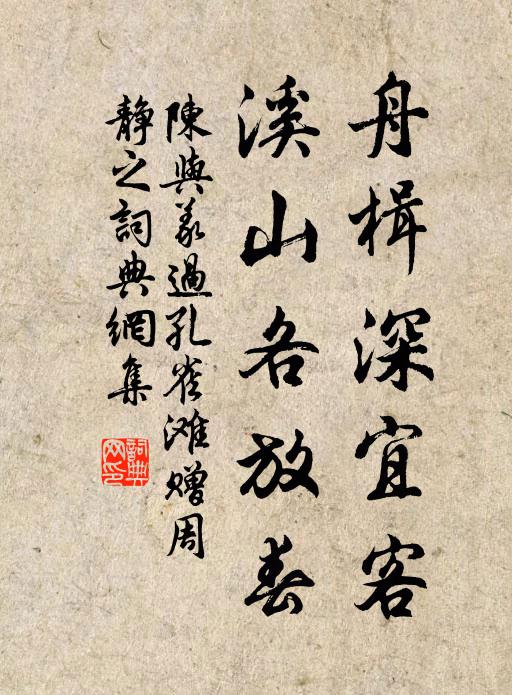 舟楫深宜客
溪山各放春
陳與義過孔雀滩赠周
静之詞典網集
詞典網印